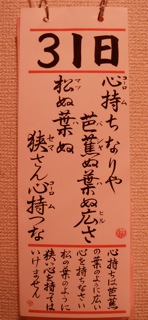 31日
心持ちなりや
芭蕉ぬ葉ぬ広さ
松ぬ葉ぬ
狭さん心持つな
心持ちは芭蕉
の葉のように広い
心を持ちなさい
松の葉のように
狭い心を持っては
いけません